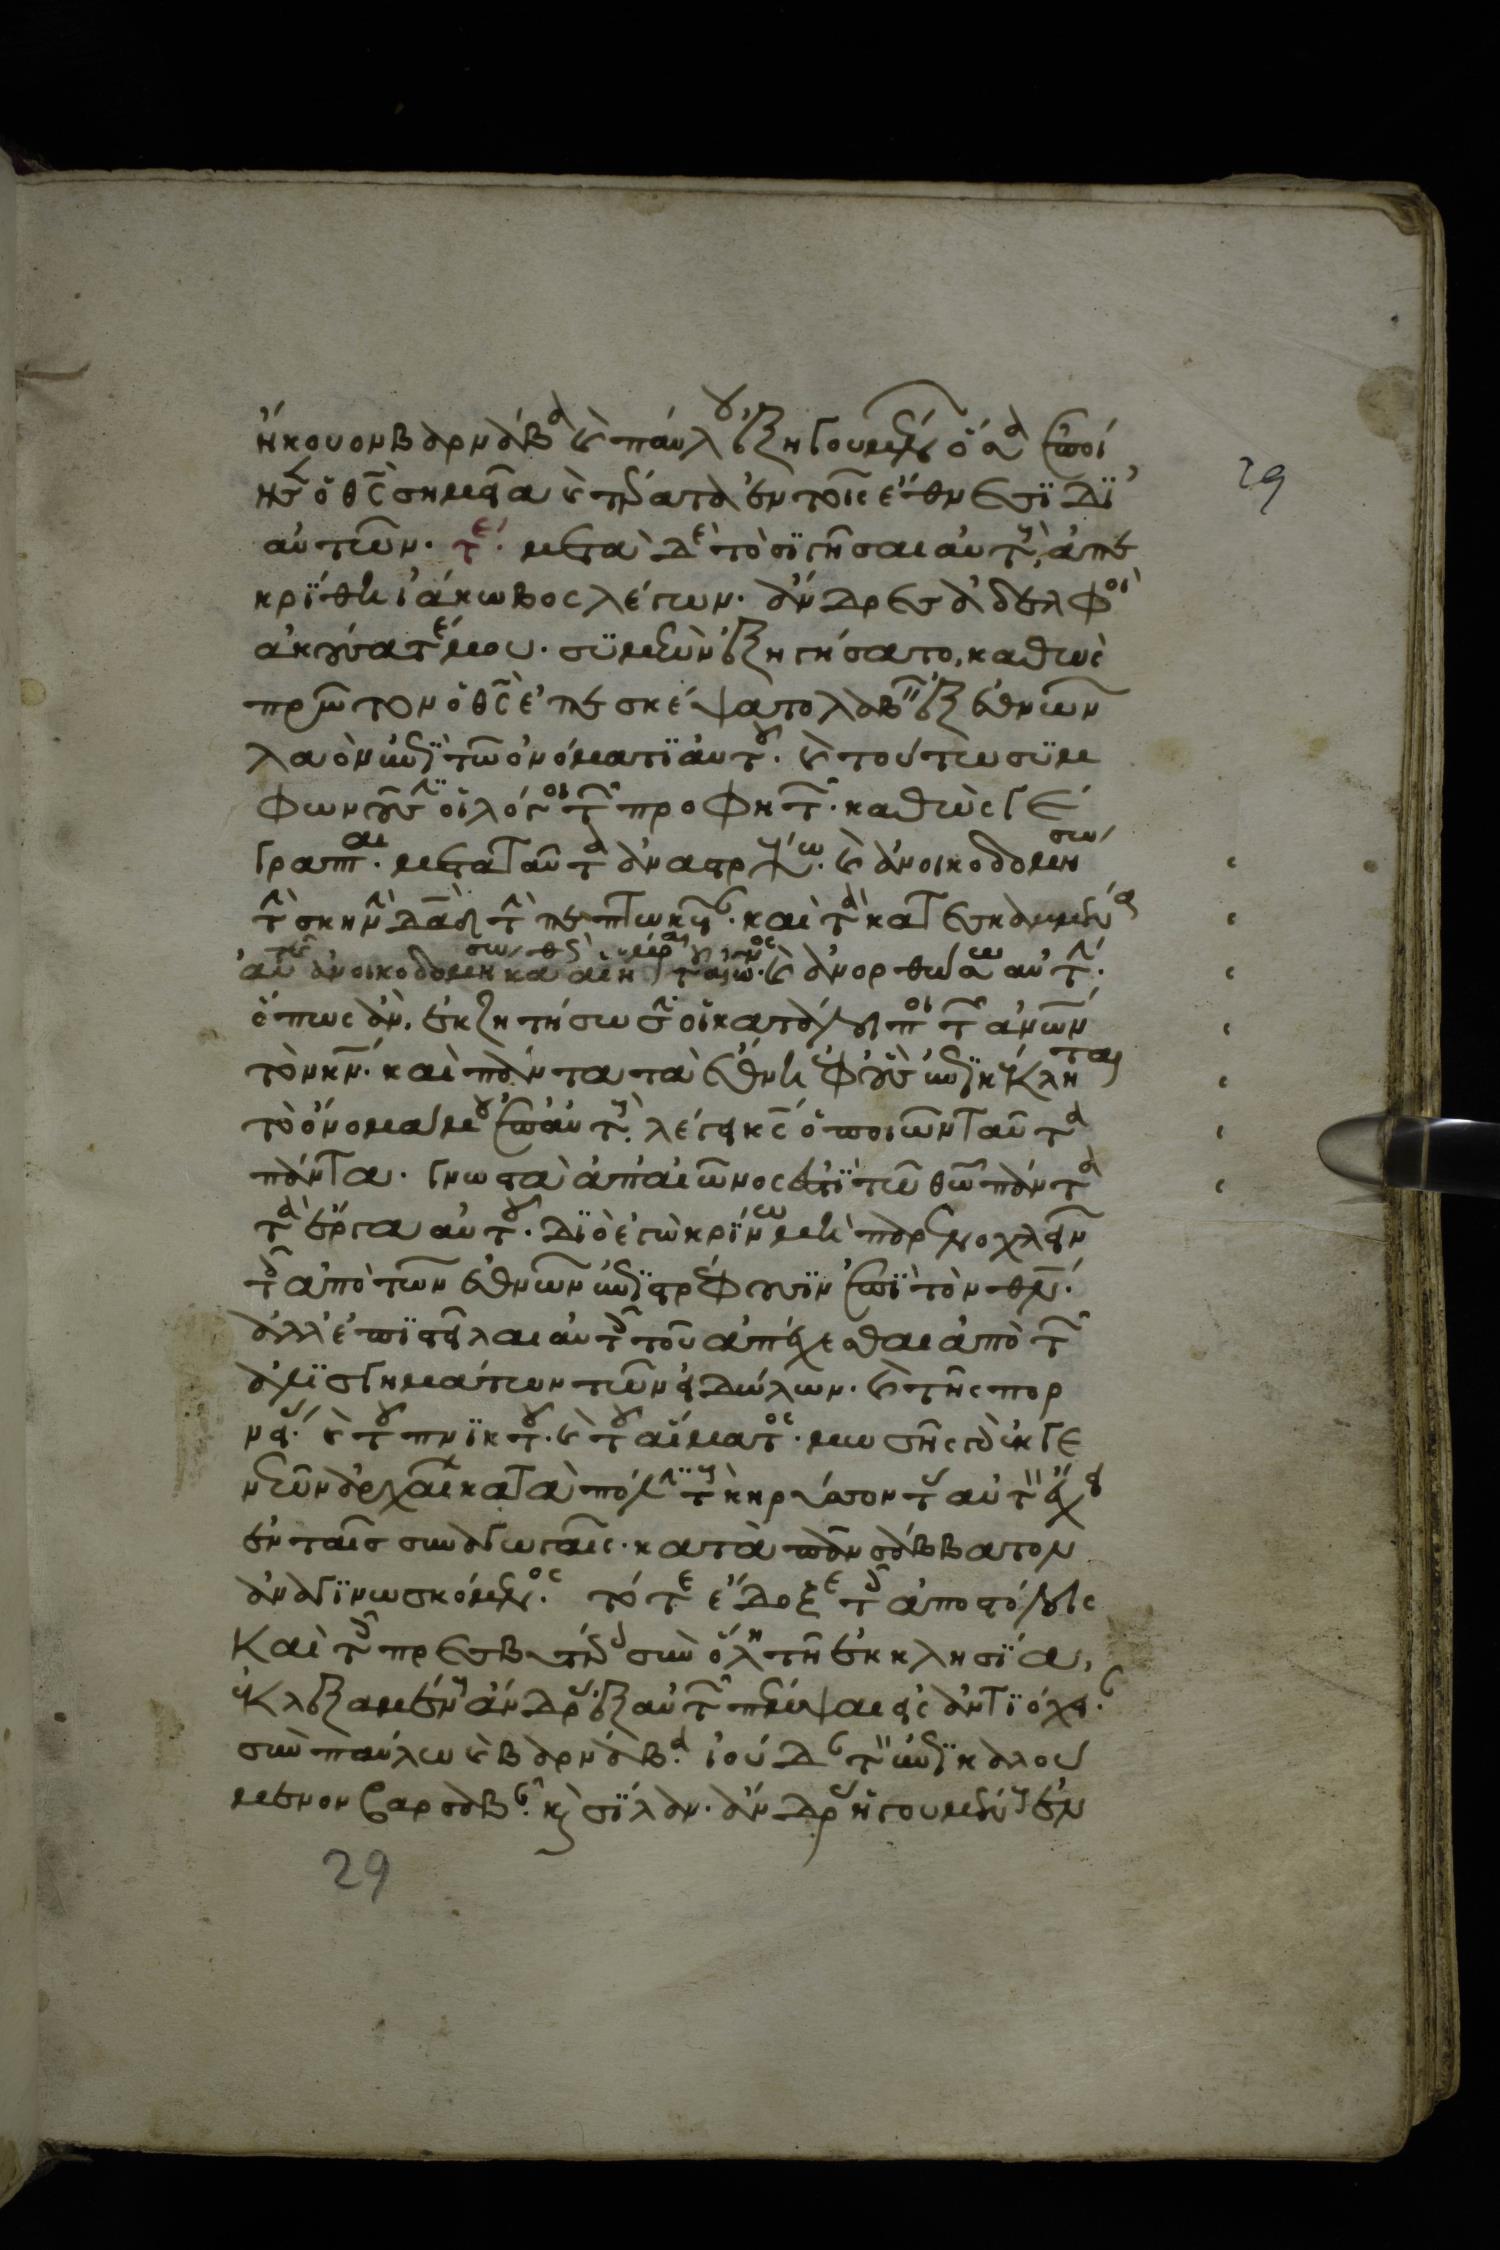 ἤκουον βαρνάβα καὶ παύλου ἐξηγουμένων ὅσα ἐποί
ησεν ὁ θς σημεῖα καὶ τέρατα ἐν τοῖς ἔθνεσϊ δϊ'
αὐτῶν. τέ. μετὰ δὲ τὸ σϊγῆσαι αὐτοὺς, ἀπε
κρίθη ἰάκωβος λέγων. ἄνδρες ἀδελφοὶ
ἀκούσατέ μου. συμεὼν ἐξηγήσατο, καθὼς
πρῶτον ὁ θς ἐπεσκέψατο λαβεῖν ἐξ ἐθνῶν
λαὸν ἐπϊ τῶ ὀνόματϊ αὐτοῦ. καὶ τούτω συμ
φωνοῦσϊν οἱ λόγοι τῶν προφητῶν. καθὼς γέ
γραπται. μετὰ ταῦτα ἀναστρέψω. καὶ ἀνοικοδομήσω
τὴν σκηνὴν δαδ τὴν πεπτωκυῖαν. καὶ τὰ κατεσκαμμένα
αὐτῆς ἀνοικοδομήσω καθὼς αἱ ἡμέραι τοῦ αἰῶνος. καὶ ἀνορθώσω αὐτήν.
ὅπως ἂν ἐκζητήσωσϊν οἱ κατάλοιποι τῶν ἀνων
τὸν κν. καὶ πάντα τὰ ἔθνη ἐφ' οὓς ἐπϊκέκληται
τὸ ὄνομά μου ἐπ' αὐτούς. λέγει κς ὁ ποιῶν ταῦτα
πάντα. γνωστὰ ἀπ' αἰῶνος ἐστϊ τῶ θω πάντα
τὰ ἔργα αὐτοῦ. δϊὸ ἐγὼ κρϊνω μὴ παρενοχλεῖν
τοῖς ἀπὸ τῶν ἐθνῶν ἐπϊστρέφουσϊν ἐπϊ τὸν θν.
ἀλλ' ἐπϊστεῖλαι αὐτοῖς τοῦ ἀπέχεσθαι ἀπὸ τῶν
ἀλϊσγημάτων τῶν εἰδώλων. καὶ τῆς πορ
νείας. καὶ τοῦ πνϊκτοῦ. καὶ τοῦ αἵματος. μωσῆς γὰρ ἐκ γε
νεῶν ἀρχαίων κατὰ πόλϊν τοὺς κηρύσσοντας αὐτὸν ἔχει
ἐν ταῖς συναγωγαῖς. κατὰ πᾶν σάββατον
ἀναγϊνωσκόμενος. τότε ἔδοξε τοῖς ἀποστόλοις
καὶ τοῖς πρεσβυτέροις σὺν ὅλη τῆ ἐκκλησϊα,
ἐκλεξαμένους ἄνδρας ἐξ αὐτῶν πέμψαι εἰς ἀντϊόχειαν.
σὺν παύλω καὶ βαρνάβα. ἰούδαν τὸν ἐπϊκαλού
μενον βαρσάβαν. καὶ σϊλαν. ἄνδρας ἡγουμένους ἐν
29
29